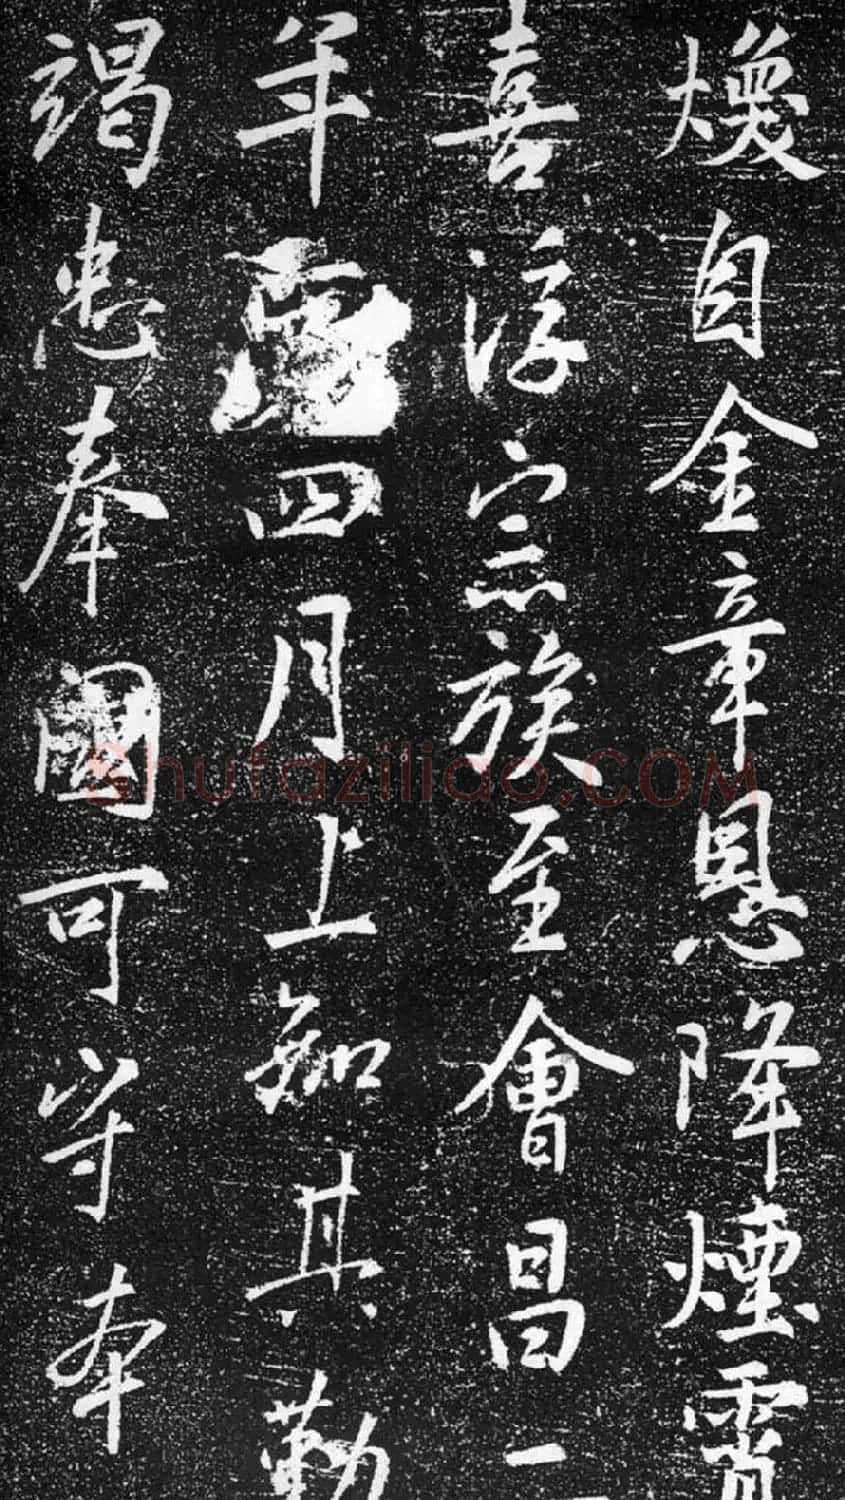 煥自金章恩降煙霄
喜浮宗族至會昌二
年四月上知其勤
竭忠奉國可守本
Shufaziliao.COM